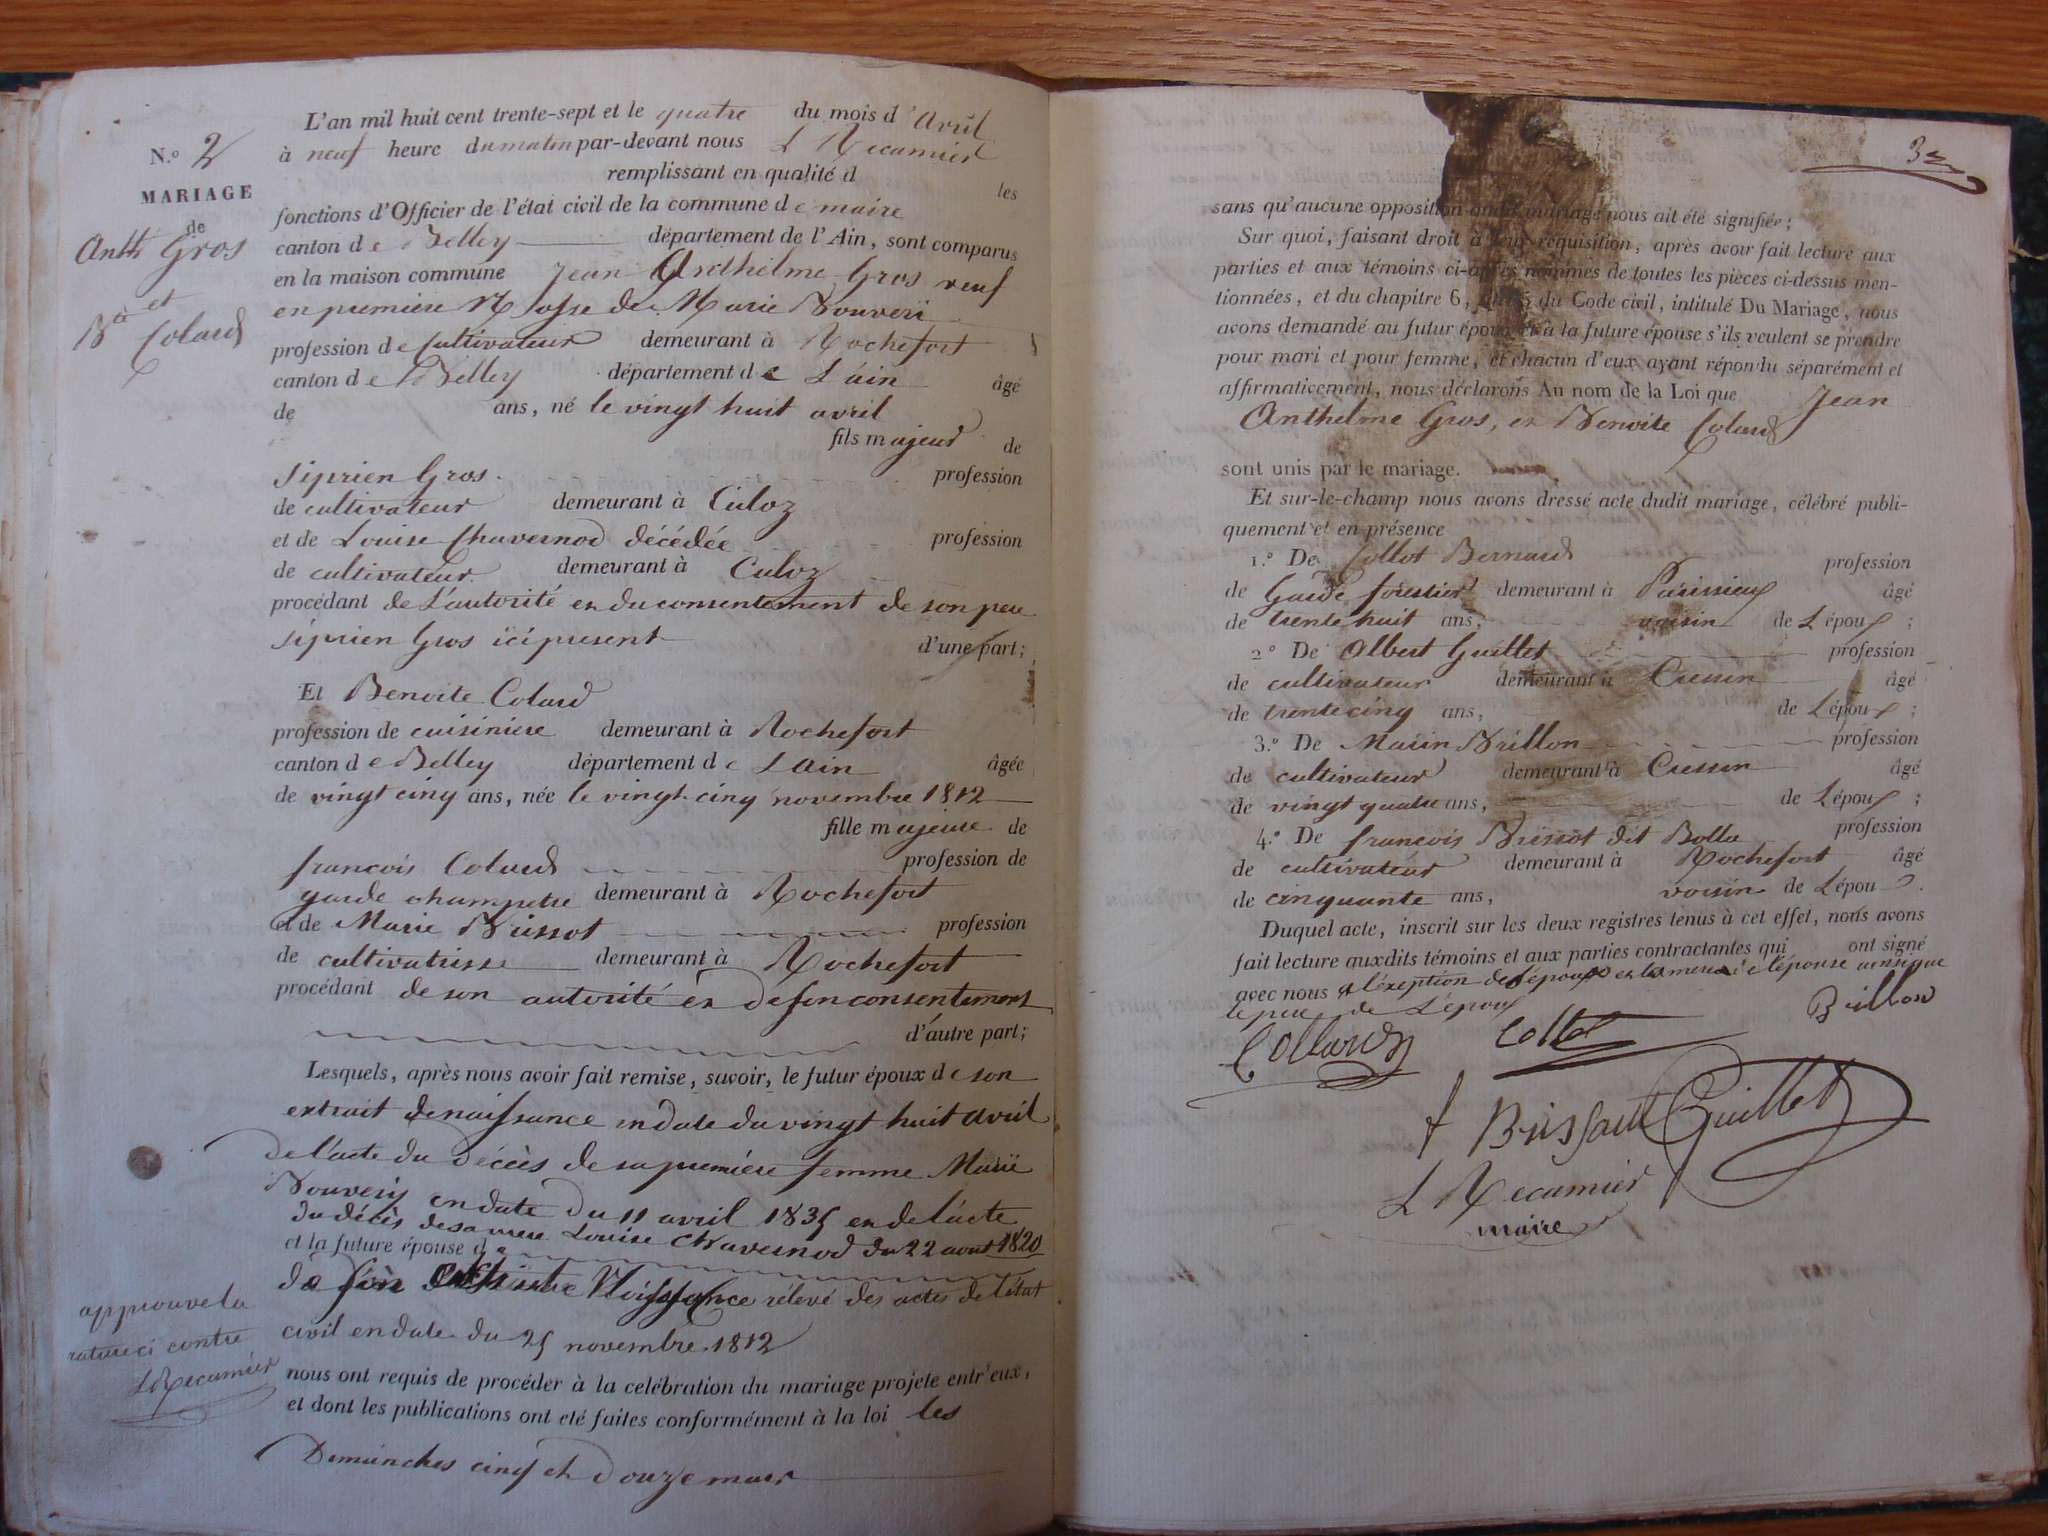 N.º 2
MARIAGE
de
Anth Gros
et
Bte Colard
L'an mil huit cent trente-sept et le quatre du mois d'avril
à neuf heure du matin par-devant nous L Recamier
remplissant en qualité d les
fonctions d'Officier de l'état civil de la commune de maire
canton de Belley département de l'Ain, sont comparus
en la maison commune Jean Anthelme Gros veuf
en premiere de Marie Bouveri
profession de Cultivateur demeurant à Rochefort
canton de Belley département de L'ain âgé
de ans, né le vingt huit avril
fils majeur de
Siprien Gros profession
de cultivateur demeurant à Culoz
et de Louise Chavernod décédée profession
de cultivateur demeurant à Culoz
procédant de L'autorité et du consentement de son pere
Siprien Gros ici present d'une part;
Et Benoite Colard
profession de cuisiniere demeurant à Rochefort
canton de Belley département de Lain âgée
de vingt cinq ans, née le vingt-cinq novembre 1812
fille majeure de
francois Colard profession de
garde champetre demeurant à Rochefort
et de Marie Brissot profession
de cultivatrisse demeurant à Rochefort
procédant de son autorité et de son consentement
d'autre part;
Lesquels, après nous avoir fait remise, savoir, le futur époux de son
extrait de naissance en date du vingt huit avril
de l'acte du décès de sa premiére femme Marie
Bouvery en date du 11 avril 1835 et de l'acte
du décès de sa mere Louise Chavernod du 22 aout 1820
et la future épouse de
de son Naissance rélevé des actes de l'état
civil en date du 25 novembre 1812
approuve la
rature ci contre
LRecamier
nous ont requis de procéder à la celébration du mariage projete entr'eux,
et dont les publications ont eté faites conformément à la loi les
Dimanches cinq et Douze mars
3
sans qu'aucune opposition audit mariage nous ait été signifiée;
Sur quoi, faisant droit à leur réquisition, après avoir fait lecture aux
parties et aux témoins ci-après nommés de toutes les pieces ci-dessus men-
tionnées, et du chapitre 6, du Code civil, intitulé Du Mariage, nous
avons demandé au futur époux et à la future épouse s'ils veulent se prendre
pour mari et pour femme, et chacun d'eux ayant répondu séparément et
affirmativement, nous déclarons Au nom de la Loi que Jean
Anthelme Gros, et Benoite Colard
sont unis par le mariage.
Et sur-le-champ nous avons dressé acte dudit mariage, célébré publi-
quement et en présence
1.º De Collot Bernard profession
de Garde forestier demeurant à Parissieux âgé
de trente huit ans, voisin de Lépoux;
2º De Albert Guillet profession
de cultivateur demeurant à Cressin âgé
de trente cinq ans, de Lépoux;
3.º De Marin Brillon profession
de cultivateur demeurant à Cressin âgé
de vingt quatre ans, de Lépoux;
4.º De francois Brissot dit Bolla profession
de cultivateur demeurant à Rochefort âgé
de cinquante ans, voisin de Lépou .
Duquel acte, inscrit sur les deux registres tenus à cet effet, nous avons
fait lecture auxdits témoins et aux parties contractantes qui ont signé
avec nous a l'éxeption de l'époux et la mere de l'épouse ainsi que
le pere de L'époux
Brillon
Collard Collot
f Brissaut Guillet
L Recamier
maire